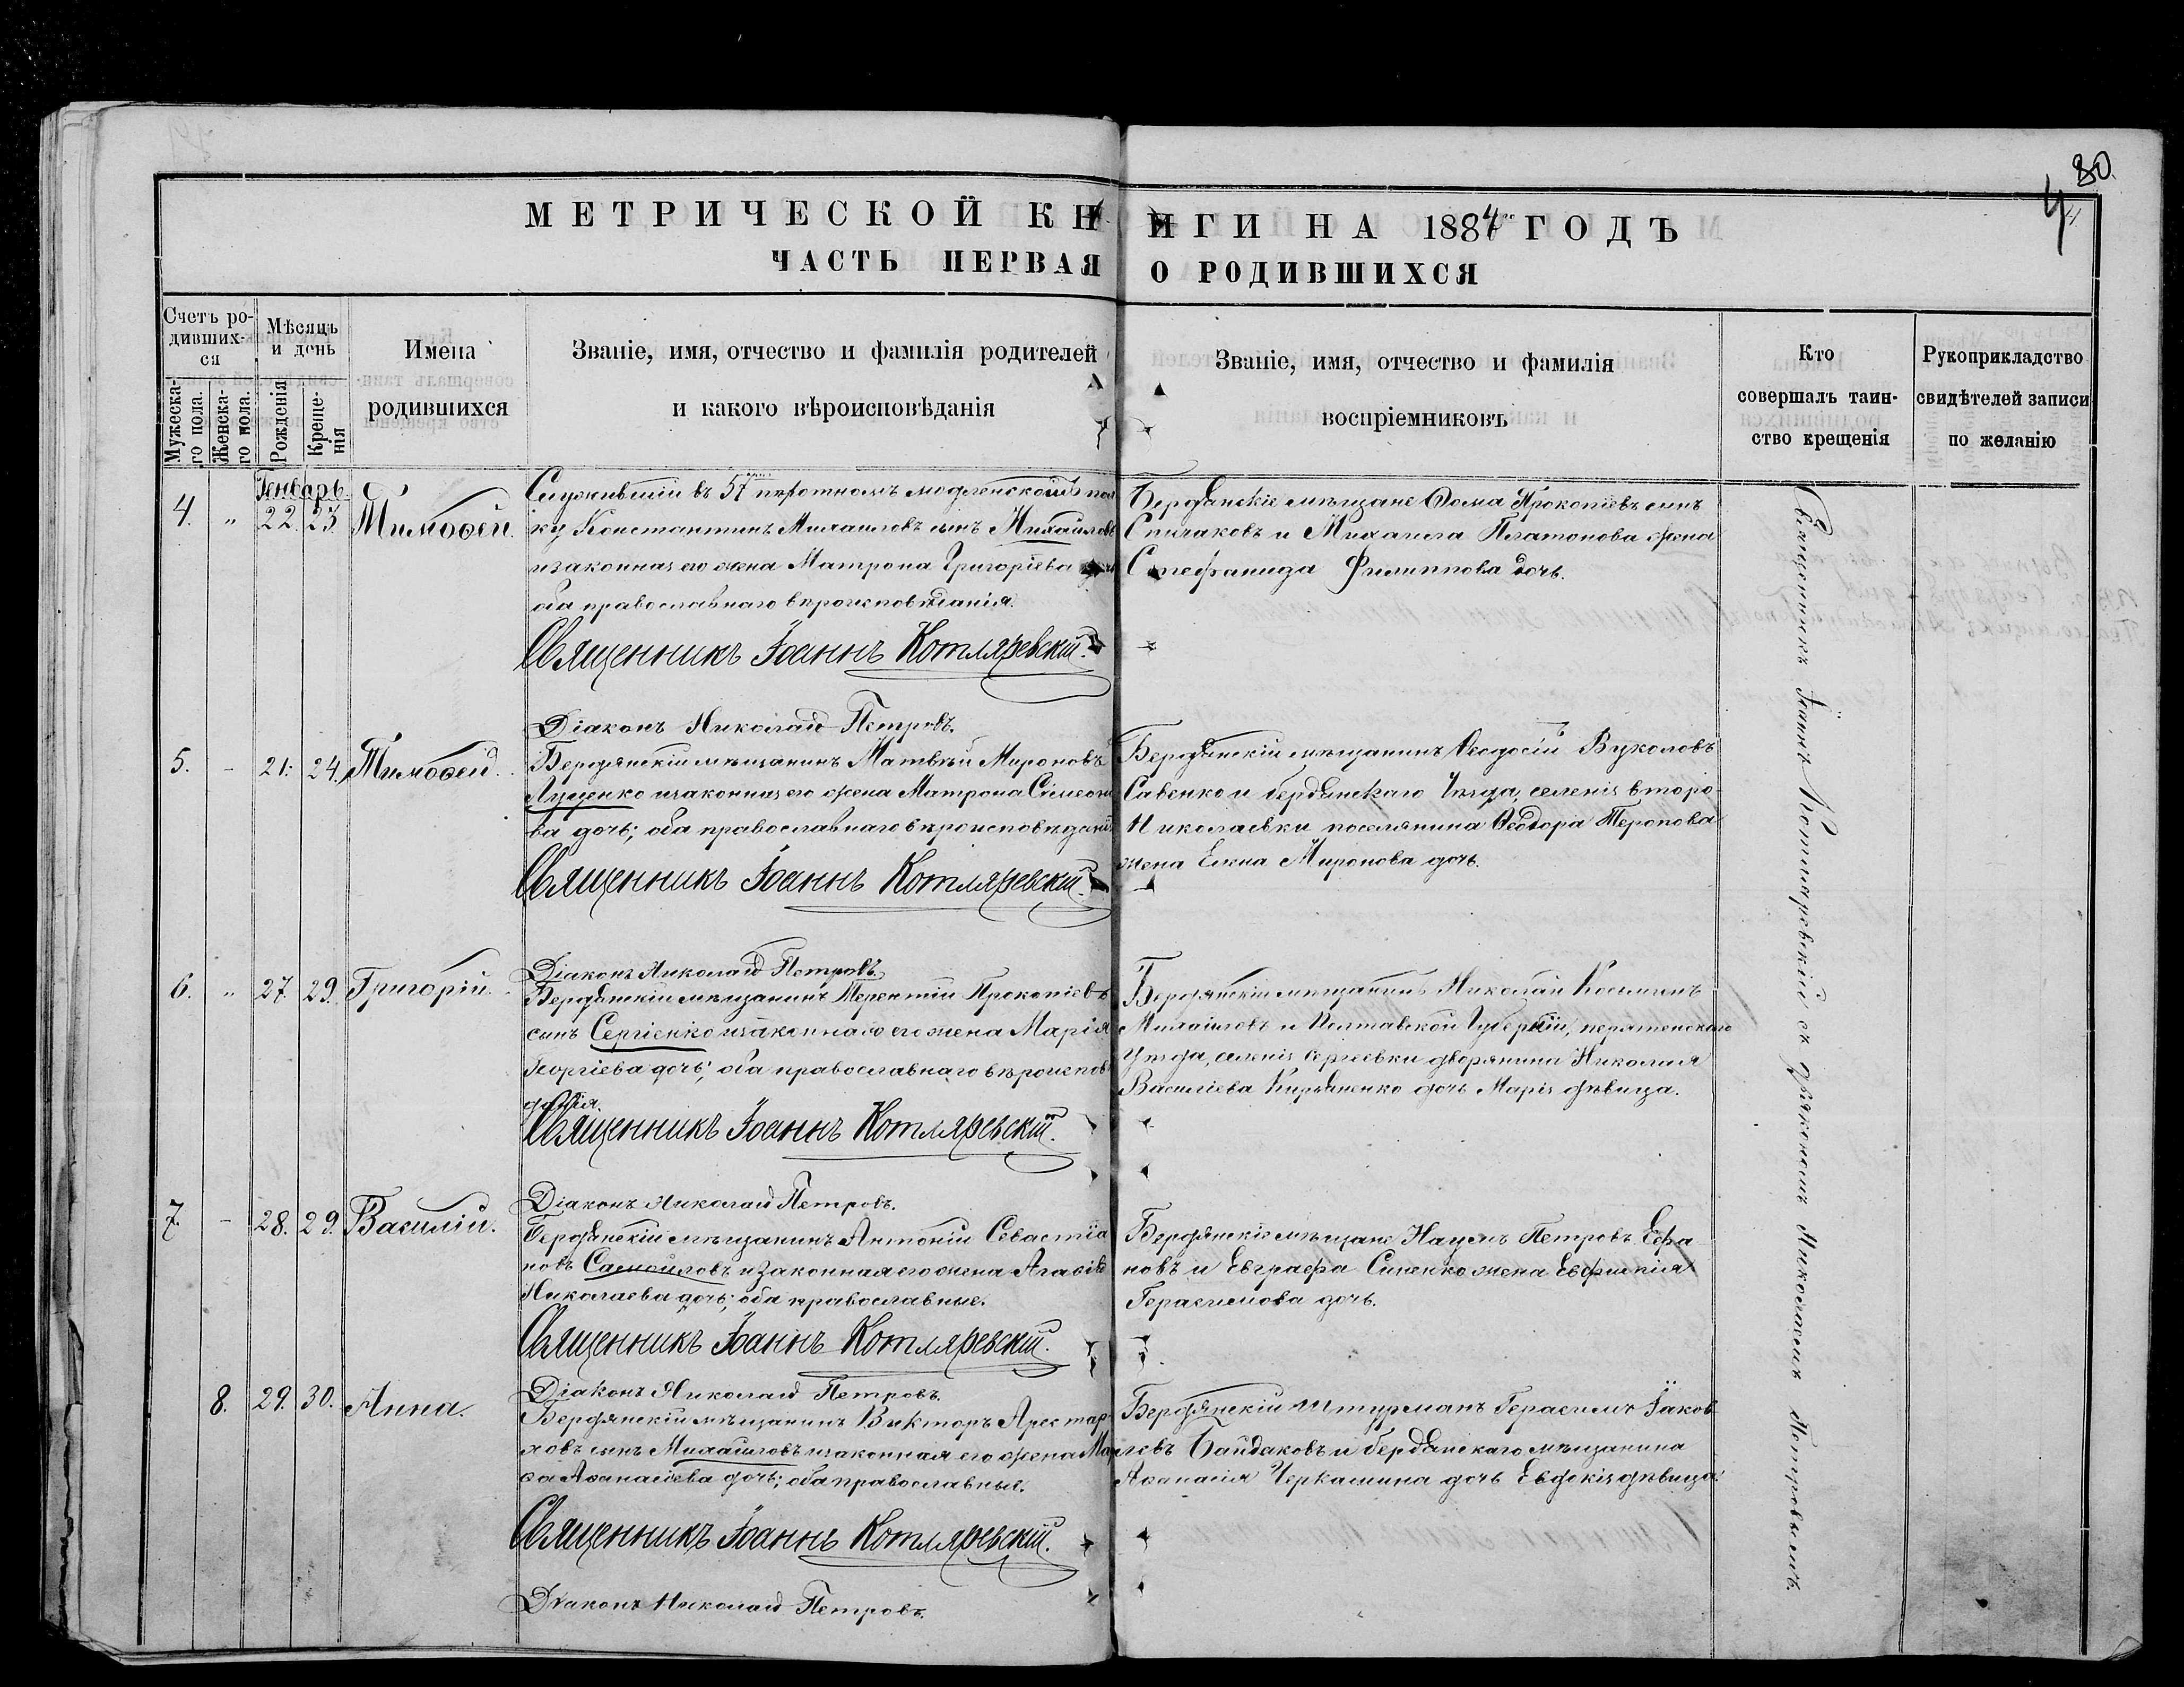 80.
4
МЕТРИЧЕСКОЙ КНИГИ НА 1884 ГОДЪ
ЧАСТЬ ПЕРВАЯ О РОДИВШИХСЯ
Счетъ ро-
дивших-
ся
Мужеска-
го пола.
Женска-
го пола.
Мѣсяцъ
и день
Рожденія
Креще-
нія
Имена
родившихся
Званіе, имя, отчество и фамилія родителей
и какого вѣроисповѣданія
Званіе, имя, отчество и фамилія
воспріемниковъ
Кто
совершалъ таин-
ство крещенія
Рукоприкладство
свидѣтелей записи
по желанію
Генварь.
4. " 22. 23 Тимоѳей.
Служившій въ 57 пѣхотномъ модленскомъ пол
ку Константинъ Михаиловъ сынъ Михайловъ
и законная его жена Матрона Григоріева
оба православнаго вѣроисповѣданія.
Священникъ Іоаннъ Котляревскій.
Діаконъ Николай Петровъ.
Бердянскіе мѣщане Ѳома Прокопіевъ сынъ
Спичаковъ и Михаила Платонова жена
Стефанида Филиппова дочь.
5. - 21. 24. Тимоѳей.
Бердянскій мѣщанинъ Матвѣй Мироновъ
Луценко и законная его жена Матрона Сѵмеоно
ва дочь; оба православнаго вѣроисповѣданія
Священникъ Іоаннъ Котляревскій.
Діаконъ Николай Петровъ.
Бердянскій мѣщанинъ Ѳеодосій Вуколовъ
Савенко и бердянскаго уѣзда, селенія второ-
Николаевки поселянина Ѳеодора Теропова
жена Елена Миронова дочь.
6. " 27. 29. Григорій.
Бердянскій мѣщанинъ Терентій Прокопіевъ
сынъ Сергіенко и законная его жена Марія
Георгіева дочь; оба православнаго вѣроисповѣ
данія.
Священникъ Іоаннъ Котляревскій.
Діаконъ Николай Петровъ.
Бердянскій мѣщанинъ Николай Косминъ
Михаиловъ и Полтавской Губерніи, пирятенскаго
уѣзда, селенія Сергеевки дворянина Николая
Василіева Кирьяненко дочь Марія дѣвица.
7. - 28. 29. Василій.
Бердянскій мѣщанинъ Антоній Севастіа
новъ Самойловъ и законная его жена Агаѳія
Николаева дочь; оба православные.
Священникъ Іоаннъ Котляревскій.
Діаконъ Николай Петровъ.
Бердянскіе мѣщане Наумъ Петровъ Ефа
новъ и Евграфа Синенко жена Евфимія
Герасимова дочь.
8. 29. 30. Анна.
Бердянскій мѣщанинъ Викторъ Аристар
ховъ сынъ Михаиловъ и законная его жена Мар
ѳа Аѳанасіева дочь; оба православные.
Священникъ Іоаннъ Котляревскій.
Діаконъ Николай Петровъ.
Бердянскій штурманъ Герасимъ Іаков
левъ Байдаковъ и бердянскаго мѣщанина
Аѳанасія Черкашина дочь Евдокія дѣвица.
Священникъ Іоаннъ Котляревскій съ діакономъ Николаемъ Петровымъ.